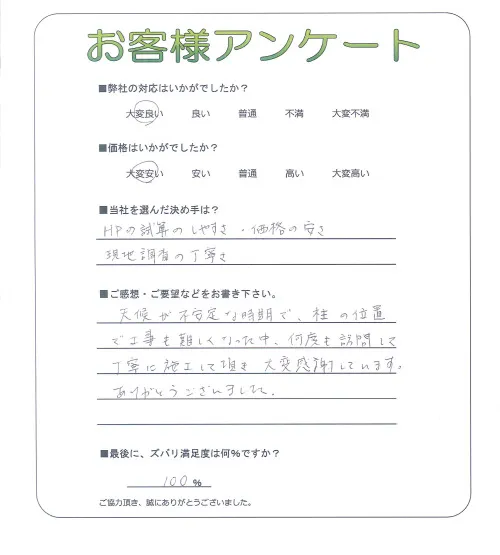 お客様アンケート
■弊社の対応はいかがでしたか？
大変良い　良い　普通　不満　大変不満
■価格はいかがでしたか？
大変安い　安い　普通　高い　大変高い
■当社を選んだ決め手は？
HPの試算のしやすさ・価格の安さ
現地調査の丁寧さ
■ご感想・ご要望などをお書き下さい。
天候が不安定な時期で、柱の位置
で工事も難しくなった中、何度も訪問して
丁寧に施工して頂き大変感謝しています。
ありがとうございました。
■最後に、ズバリ満足度は何％ですか？
100％
ご協力頂き、誠にありがとうございました。